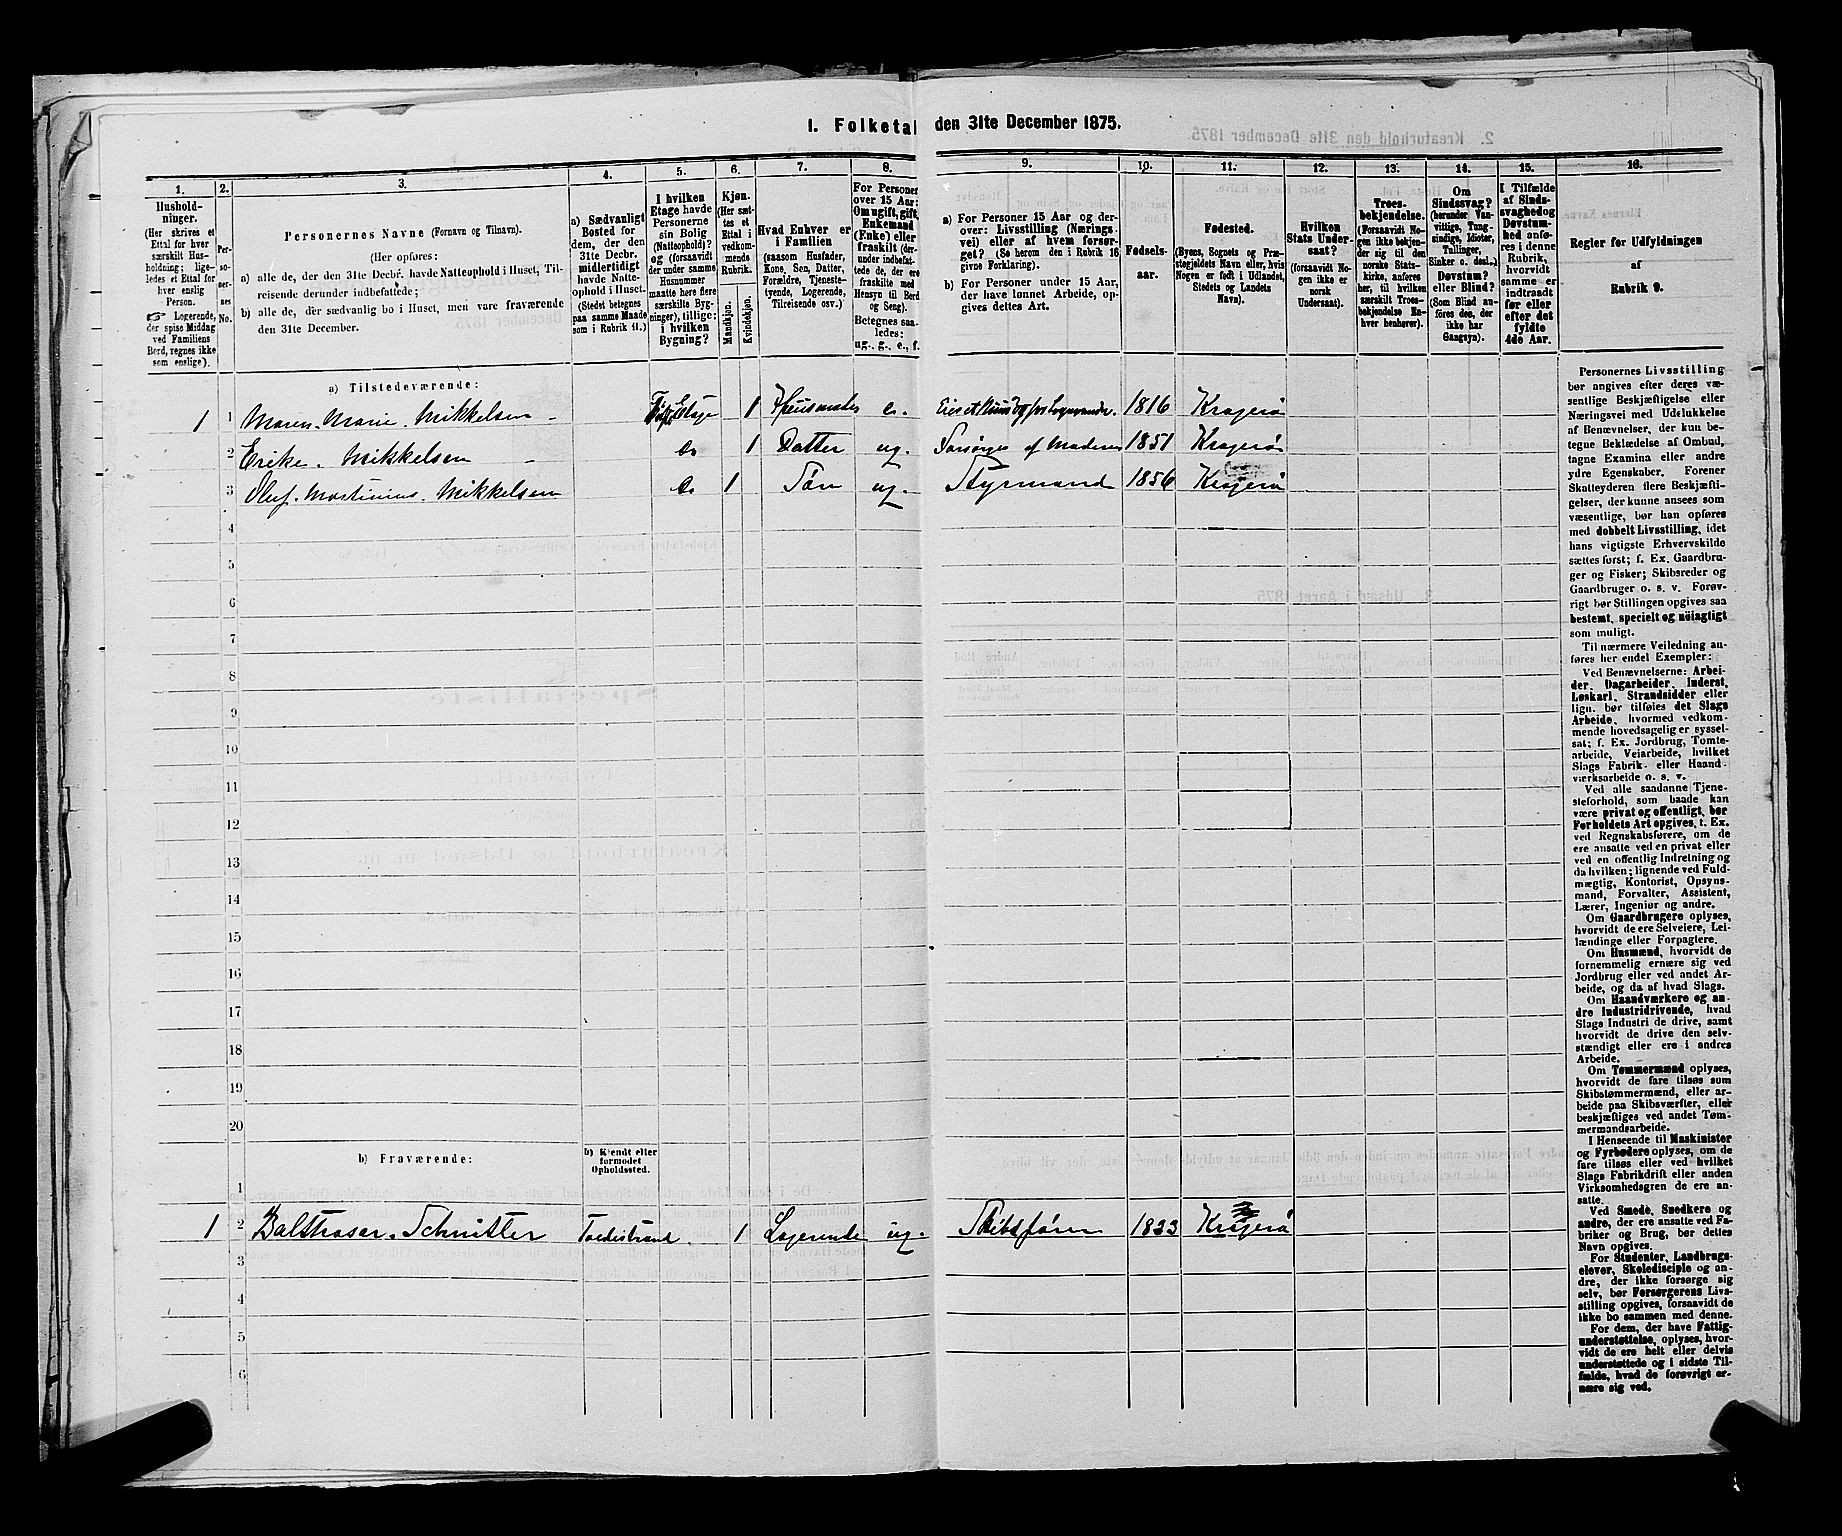 1. Folketal den 31te December 1875.
1.
Hushold-
ninger.
(Her skrives et
Ettal for hver
særskilt Hus-
holdning; lige-
ledes et Ettal for
hver enslig
Person.
☞ Logerende,
der spise Middag
ved Familiens
Bord, regnes ikke
som enslige).
2.
Per-
so-
ner-
nes
No.
3.
Personernes Navne (Fornavn og Tilnavn).
(Her opføres:
a) alle de, der den 31te Decbr. havde Natteophold i Huset, Til-
reisende derunder indbefattede;
b) alle de, der sædvanlig bo i Huset, men vare fraværende
den 31te December.
4.
a) Sædvanligt
Bosted for
dem, der den
31te Decbr.
midlertidigt
havde Natte-
ophold i Huset.
(Stedet betegnes
paa samme Maade
som i Rubrik 11.)
5.
I hvilken
Etage havde
Personerne
sin Bolig
(Natteophold)?
og (forsaavidt
der under samme
Husnummer
maatte høre flere
særskilte Byg-
ninger), tillige:
i hvilken
Bygning?
6.
Kjøn.
(Her sæt-
tes et
Ettal i
vedkom-
mende
Rubrik.
Mandkjøn.
Kvindekjøn.
7.
Hvad Enhver er
i Familien
(saasom Husfader,
Kone, Søn, Datter,
Forældre, Tjeneste-
tyende, Logerende,
Tilreisende osv.)
8.
For Personer
over 15 Aar:
Om ugift, gift,
Enkemand
(Enke) eller
fraskilt (der-
under indbefat-
tede de, der ere
fraskilte med
Hensyn til Bord
og Seng).
Betegnes saa-
ledes:
ug., g., e., f.
9.
a) For Personer 15 Aar og der-
over: Livsstilling (Nærings-
vei) eller af hvem forsør-
get? (Se herom den i Rubrik 16
givne Forklaring).
b) For Personer under 15 Aar,
der have lønnet Arbeide, op-
gives dettes Art.
10.
Fødsels-
aar.
11.
Fødested.
(Byens, Sognets og Præ-
stegjeldets Navn eller, hvis
Nogen er født i Udlandet,
Stedets og Landets
Navn).
12.
Hvilken
Stats Under-
saat?
(forsaavidt No-
gen ikke er
norsk
Undersaat).
13.
Troes-
bekjendelse.
(Forsaavidt No-
gen ikke bekjen-
der sig til den
norske Stats-
kirke, anføres
her, til hvilken
særskilt Troes-
bekjendelse En-
hver henhører).
14.
Om
Sindssvag?
(herunder Van-
vittige, Tung-
sindige, Idioter,
Tullinger,
Sinker o. desl.,)
Døvstum?
eller Blind?
(Som Blind an-
føres den, der
ikke har
Gangsyn).
15.
I Tilfælde
af Sinds-
svaghed og
Døvstum-
hed anfø-
res i denne
Rubrik,
hvorvidt
samme er
indtraadt
før eller
efter det
fyldte
4de Aar.
16.
Regler for Udfyldningen
af
Rubrik 9.
a) Tilstedeværende:
1 1 Maren Marie Mikkelsen - Etage 1 Huusmoder e. 1816 Kragerø
2 Erike Mikkelsen - do 1 Datter ug. Forsørges af Moderen 1851 Kragerø
3 Oluf Martinius Mikkelsen do 1 Søn ug. Styrmand 1856 Kragerø
4
5
6
7
8
9
10
11
12
13
14
15
16
17
18
19
20
b) Fraværende:
b) Kjendt eller
formodet
Opholdssted.
1
1 2 Balthasar Schnitler 1 Logerende ug. Skibsfører 1833 Kragerø
3
4
5
6
Personernes Livsstilling
bør angives efter deres væ-
sentlige Beskjæftigelse eller
Næringsvei med Udelukkelse
af Benævnelser, der kun be-
tegne Beklædelse af Ombud,
tagne Examina eller andre
ydre Egenskaber. Forener
Skatteyderen flere Beskjæfti-
gelser, der kunne ansees som
væsentlige, bør han opføres
med dobbelt Livsstilling, idet
hans vigtigste Erhvervskilde
sættes først; f. Ex. Gaardbru-
ger og Fisker; Skibsreder og
Gaardbruger o. s. v. Forøv-
rigt bør Stillingen opgives saa
bestemt, specielt og nöiagtigt
som muligt.
Til nærmere Veiledning an-
føres her endel Exempler:
Ved Benævnelserne: Arbei-
der, Dagarbeider, Inderst,
Løskarl, Strandsidder eller
lign. bør tilføies det Slags
Arbeide, hvormed vedkom-
mende hovedsagelig er syssel-
sat; f. Ex. Jordbrug, Tomte-
arbeide, Veiarbeide, hvilket
Slags Fabrik- eller Haand-
værksarbeide o. s. v.
Ved alle saadanne Tjene-
steforhold, som baade kan
være privat og offentligt, bør
Forholdets Art opgives, t. Ex.
ved Regnskabsførere, om de
ere ansatte ved en privat eller
ved en offentlig Indretning og
da hvilken; lignende ved Fuld-
mægtig, Kontorist, Opsyns-
mand, Forvalter, Assistent,
Lærer, Ingeniør og andre.
Om Gaardbrugere oplyses,
hvorvidt de ere Selveiere, Lei-
lændinge eller Forpagtere.
Om Husmænd, hvorvidt de
fornemmelig ernære sig ved
Jordbrug eller ved andet Ar-
beide, og da af hvad Slags.
Om Haandværkere og an-
dre Industridrivende, hvad
Slags Industri de drive, samt
hvorvidt de drive den selv-
stændigt eller ere i andres
Arbeide.
Om Tømmermænd oplyses,
hvorvidt de fare tilsøs som
Skibstømmermænd, eller ar-
beide paa Skibsværfter, eller
beskjæftiges ved andet Tøm-
mermandsarbeide.
I Henseende til Maskinister
og Fyrbødere oplyses, om de
fare tilsøs eller ved hvilket
Slags Fabrikdrift eller anden
Virksomhedsgren de ere an-
satte.
Ved Smede, Snedkere og
andre, der ere ansatte ved Fa-
briker og Brug, bør dettes
Navn opgives.
For Studenter, Landbrugs-
elever, Skoledisciple og an-
dre, der ikke forsørge sig
selv, bør Forsørgerens Livs-
stilling opgives, forsaavidt de
ikke bo sammen med denne.
For dem, der have Fattig-
understøttelse, oplyses, hvor-
vidt de ere helt eller delvis
understøttede og i sidste Til-
fælde, hvad de forøvrigt er-
nære sig ved.